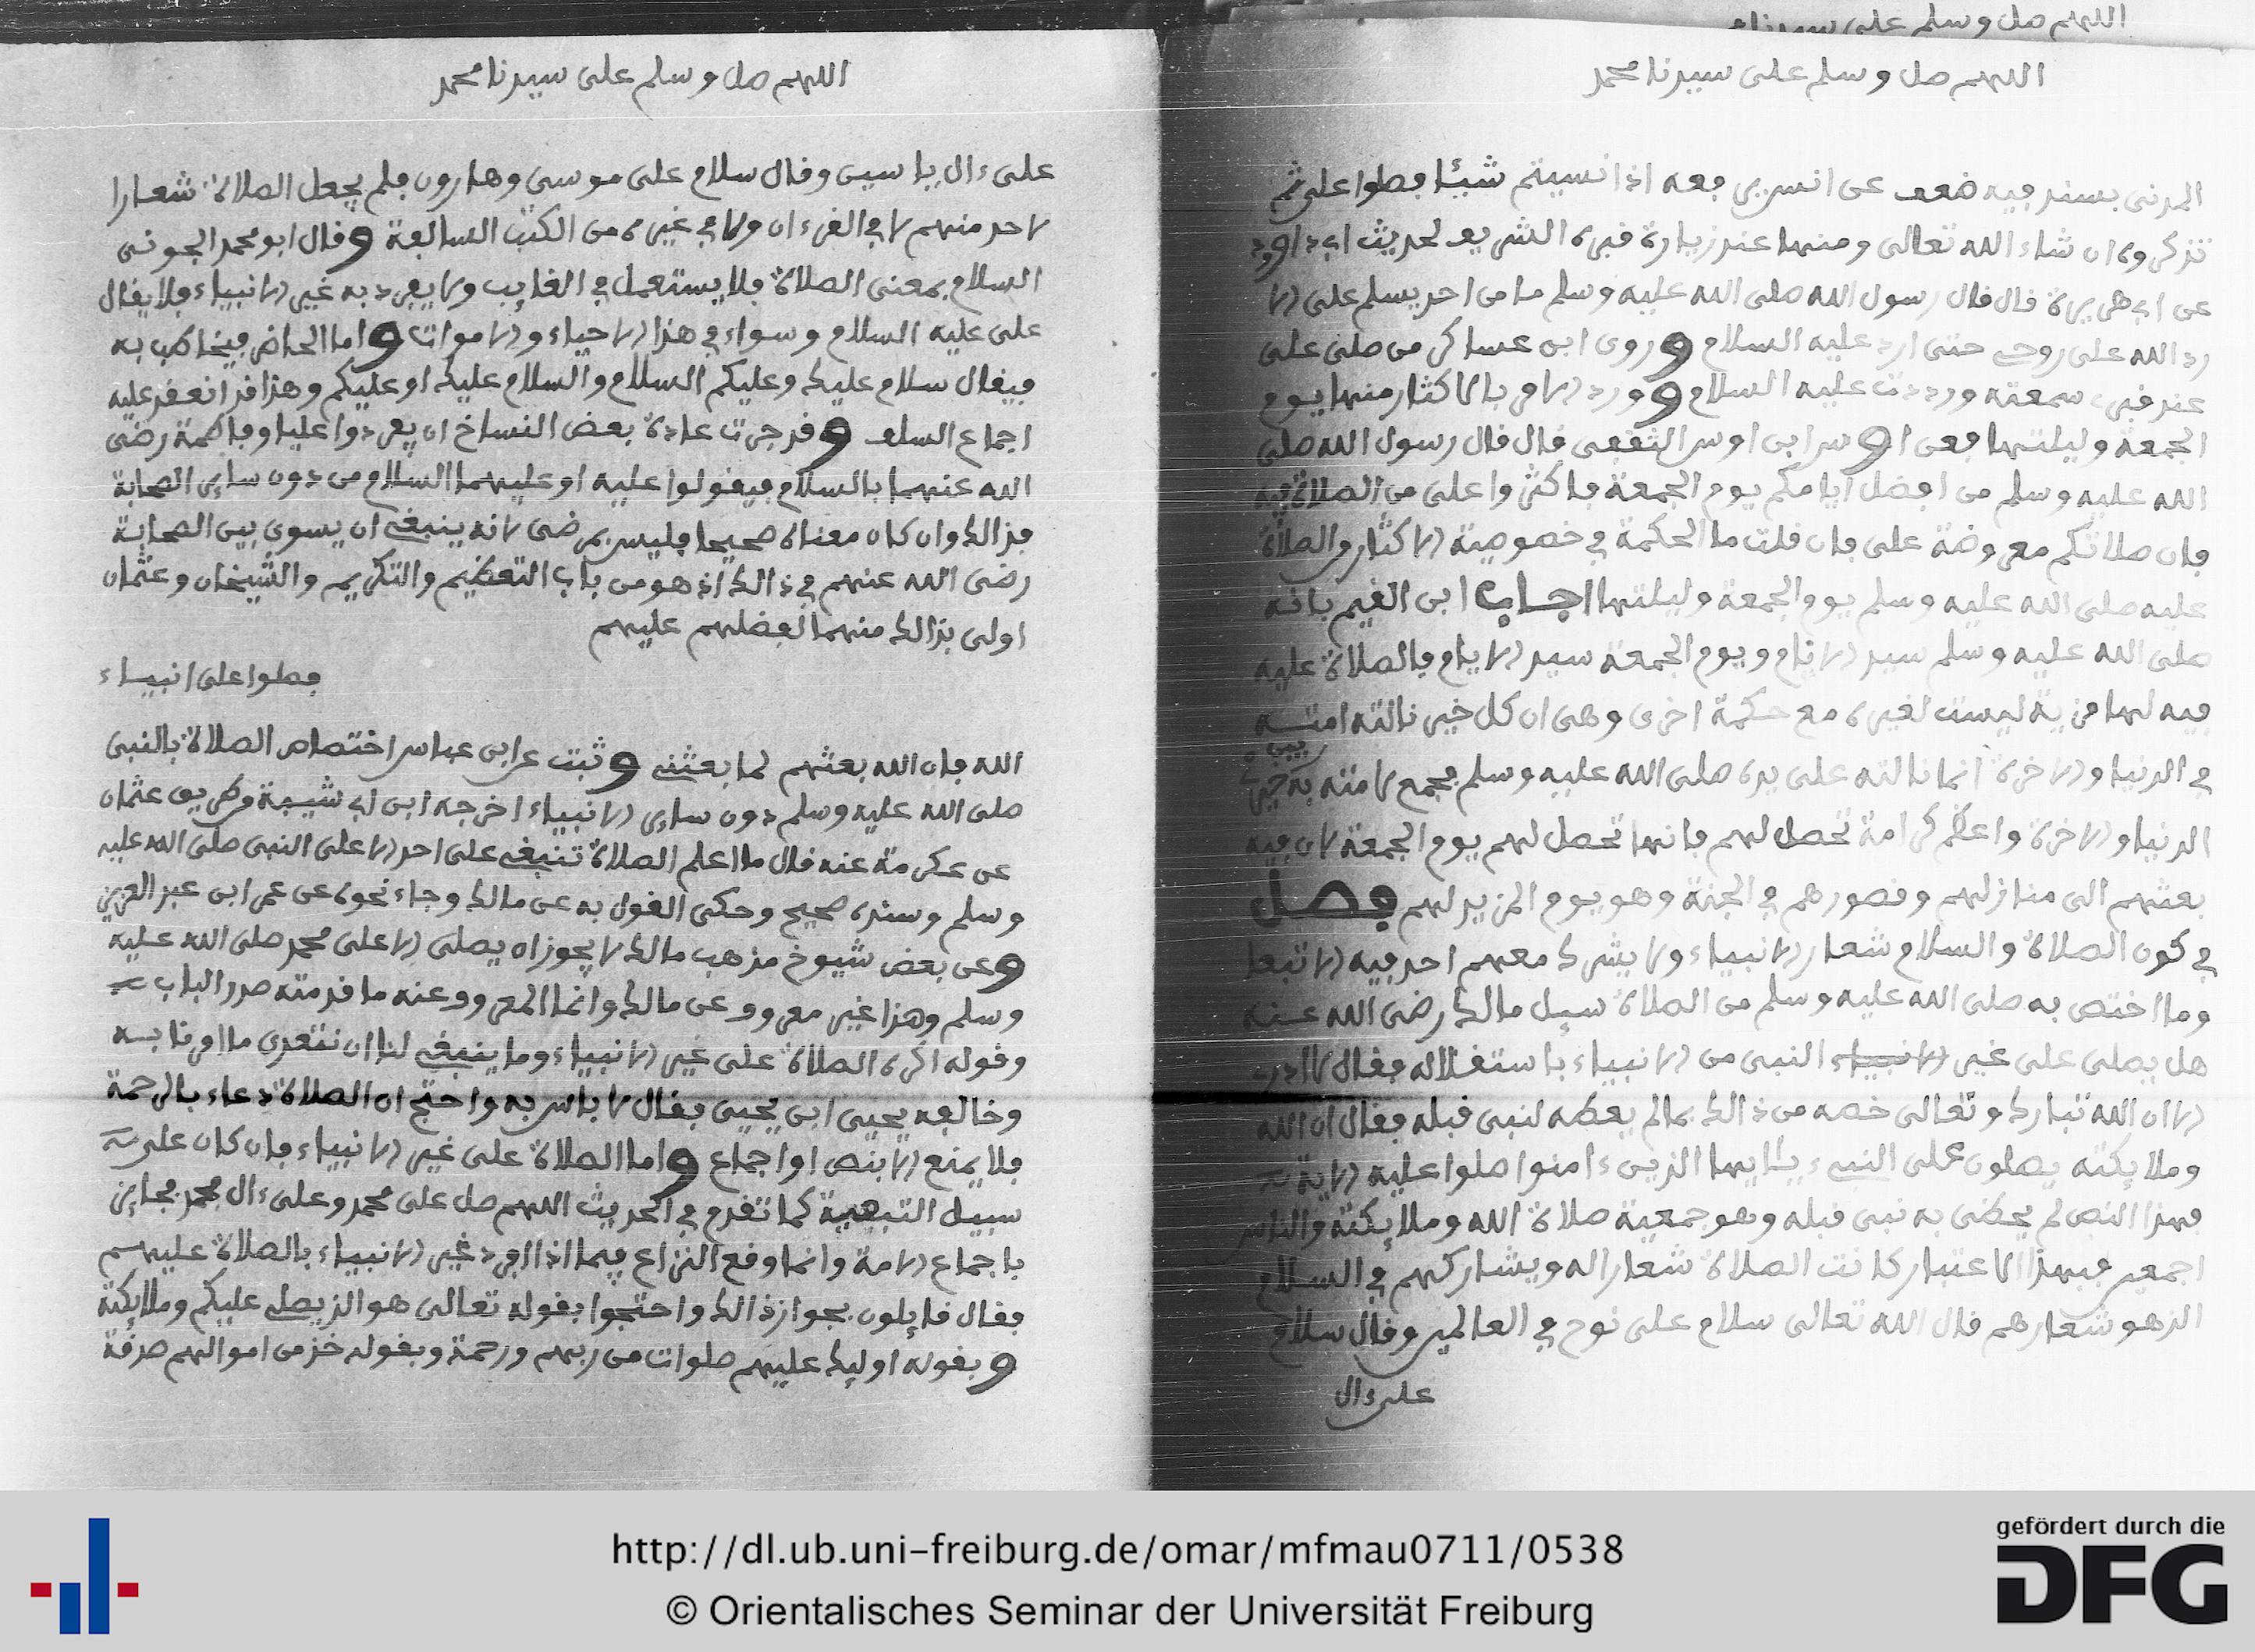 اللهم صل وسلم على سيدنا
اللهم صل وسلم على سيدنا محمد
المدني بسند فيه ضعف عن انس رفعه اذا نسيتم شيئا فصلوا علي ثم
تذكروه ان شاء الله تعالى ومنها عند زيارة قبره الشريف لحديث ابي داوود
عن ابي هريرة قال قال رسول الله صلى الله عليه وسلم ما من احد يسلم علي الا
رد الله علي روحي حتى ارد عليه السلام وروى ابن عساكر من صلى علي
عند قبري سمعته ورددت عليه السلام وورد الامر بالاكثار منها يوم
الجمعة وليلتها فعن اوس ابن اوس الثقفي قال قال رسول الله صلى
الله عليه وسلم من افضل ايامكم يوم الجمعة فاكثروا علي من الصلاة فيه
فان صلاتكم معروضة علي فان قلت ما الحكمة في خصوصية الاكثار من الصلاة
عليه صلى الله عليه وسلم يوم الجمعة وليلتها اجاب ابن القيم بانه
صلى الله عليه وسلم سيد الانام ويوم الجمعة سيد الايام فالصلاة عليه
فيه لها مزية ليست لغيره مع حكمة اخرى وهي ان كل خير نالته امته
في الدنيا والاخرة انما نالته على يده صلى الله عليه وسلم فجمع لامته به بين خيري
الدنيا والاخرة واعظم كرامة تحصل لهم فانها تحصل لهم يوم الجمعة لان فيه
بعثهم الى منازلهم وقصورهم في الجنة وهو يوم المزيد لهم فصل
في كون الصلاة والسلام شعار الانبياء ولا يشرك معهم احد فيه الا تبعا
وما اختص به صلى الله عليه وسلم من الصلاة سيل مالك رضي الله عنه
هل يصلى على غير الانبياء النبي من الانبياء باستقلاله فقال لا ادري
الا ان الله تبارك وتعالى خصه من ذالك بما لم يعطه لنبي قبله فقال ان الله
وملايكته يصلون على النبيء يأيها الذين ءامنوا صلوا عليه الاية
فهذا النص لم يحظى به نبي قبله وهو جمعية صلاة الله وملايكته والناس
اجمعين فبهذا الاعتبار كانت الصلاة شعارا له ويشاركهم في السلام
الذ هو شعارهم قال الله تعالى سلام على نوح في العالمين وقال سلام
على ءال
اللهم صل وسلم على سيدنا محمد
على ءال ياسين وقال سلام على موسى وهارون فلم يجعل الصلاة شعارا
لاحد منهم لا في القرءان ولا في غيره من الكتب السالفة وقال ابو محمد الجوني
السلام بمعنى الصلاة فلا يستعمل في الغايب ولا يفرد به غير الانبياء فلا يقال
على عليه السلام وسواء في هذا الاحياء والاموات واما الحاضر فيخاطب به
فيقال سلام عليك وعليكم السلام والسلام عليك او عليكم وهذا قد انعقد عليه
اجماع السلف وقد جرت عادة بعض النساخ ان يفردوا عليا وفاطمة رضي
الله عنهما بالسلام فيقولوا عليه او عليهما السلام من دون ساير الصحابة
فذالك وان كان معناه صحيحا فليس بمرضى لانه ينبغي ان يسوى بين الصحابة
رضي الله عنهم في ذالك اذ هو من باب التعظيم والتكريم والشيخان وعثمان
اولى بذالك منهما لفضلهم عليهم
فصلوا على انبياء
الله فان الله بعثهم لما بعثني وثبت عن ابن عباس اختصاص الصلاة بالنبي
صلى الله عليه وسلم دون ساير الانبياء اخرجه ابن ابي شيبة من طريق عثمان
عن عكرمة عنه قال ما اعلم الصلاة تنبغي على احد الا على النبي صلى الله عليه
وسلم وسنده صحيح وحكي القول به عن مالك وجاء نحوه عن عمر ابن عبد العزيز
وعن بعض شيوخ مذهب مالك لا يجوز ان يصلى الا على محمد صلى الله عليه
وسلم وهذا غير معروف عن مالك وانما المعروف عنه ما قدمته صدر الباب
وقوله اكره الصلاة على غير الانبياء وما ينبغي لنا ان نتعدى ما امرنا به
وخالفه يحيى ابن يحيى فقال لا باس به واحتج ان الصلاة دعاء بالرحمة
فلا يمنع الا بنص او اجماع واما الصلاة على غير الانبياء فان كان على
سبيل التبعية كما تقدم في الحديث اللهم صل على محمد وعلى ءال محمد فجايز
باجماع الامة وانما وقع النزاع فيما اذا افرد غير الانبياء بالصلاة عليهم
فقال قايلون بجواز ذالك واحتجوا بقوله تعالى هو الذ يصلي عليكم وملايكته
وبقوله اوليك عليهم صلوات من ربهم ورحمة وبقوله خذ من اموالهم صدقة
http://dl.ub.uni-freiburg.de/omar/mfmau0711/0538
© Orientalisches Seminar der Universität Freiburg
gefördert durch die
DFG